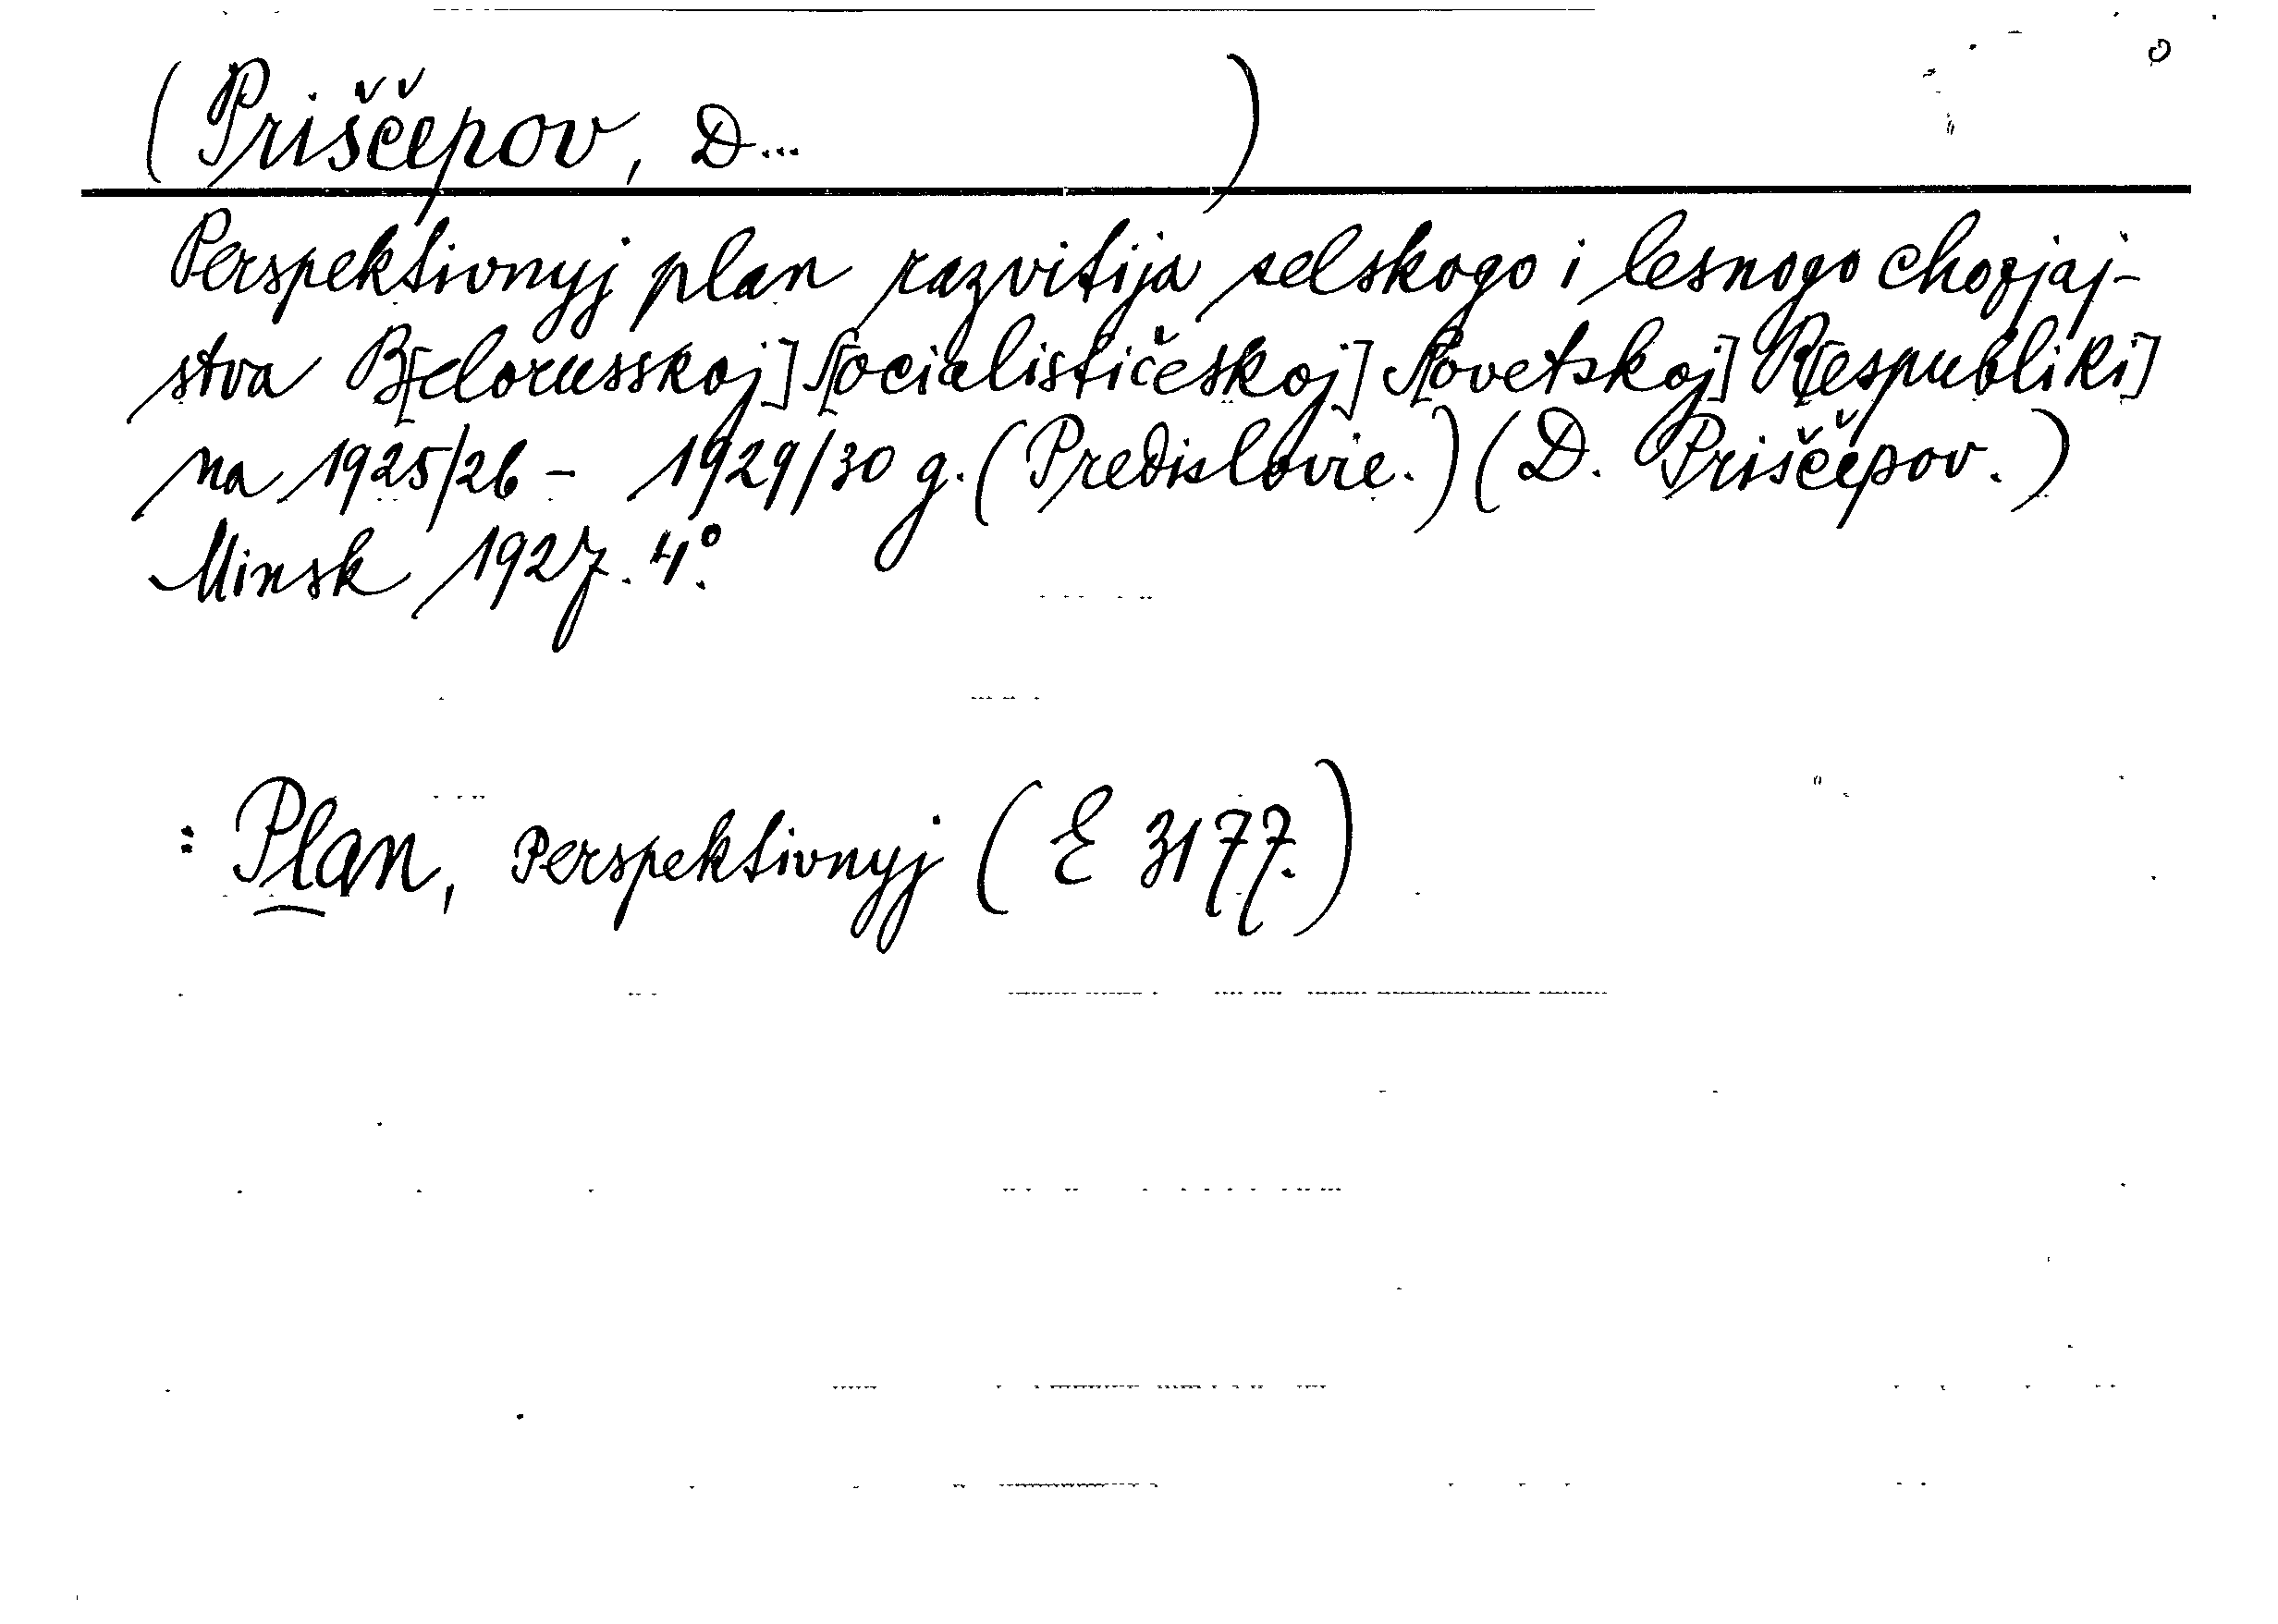 (Priščepov, D... )
Perspektivnyj plan razvitija selskogo i lesnogo chozjaj-
stva B[elorusskoj] S[ocialističeskoj] S[ovetskoj] R[espubliki]
na 1925/26 - 1929/30 g. (Predislovie.) (D. Priščepov.)
Minsk 1927. 4°.
: Plan, Perspektivnyj (E 3177.)